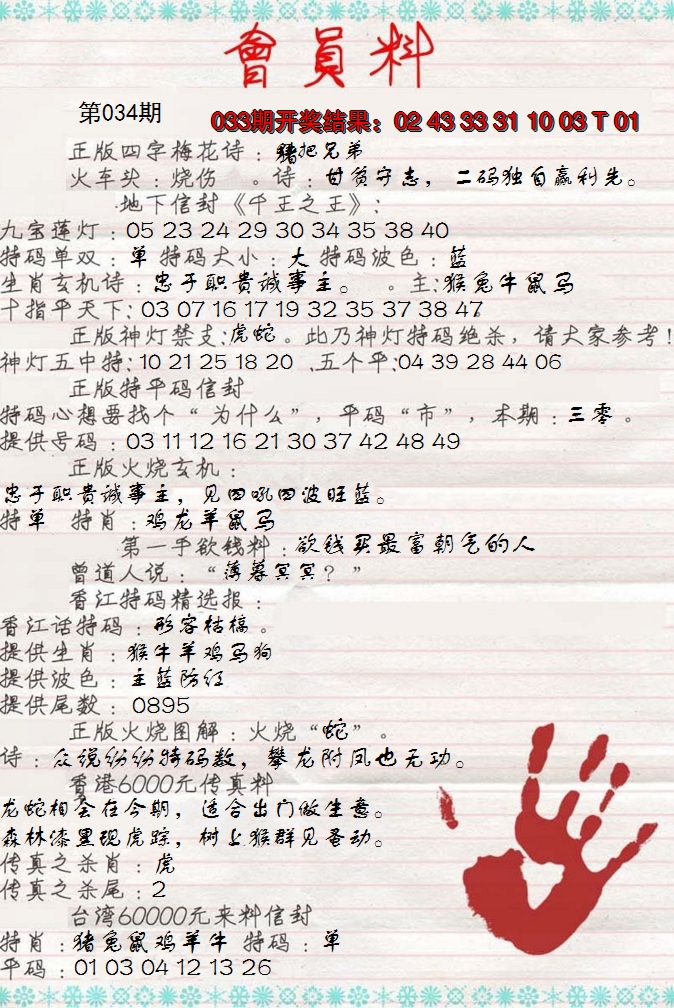 會員料
第034期
033期开奖结果：02 43 33 31 10 03 T 01
正版四字梅花诗：猪把兄弟
火车头：烧伤 。诗：甘贫守志，二码独自赢利先。
地下信封《千王之王》：
九宝莲灯：05 23 24 29 30 34 35 38 40
特码单双：单 特码大小：大 特码波色：蓝
生肖玄机诗：忠于职责诚事主。 。主：猴兔牛鼠马
十指平天下：03 07 16 17 19 32 35 37 38 47
正版神灯禁支：虎蛇。此乃神灯特码绝杀，请大家参考！
神灯五中特：10 21 25 18 20 .五个平：04 39 28 44 06
正版特平码信封
特码心想要找个“为什么”，平码“市”，本期：三零。
提供号码：03 11 12 16 21 30 37 42 48 49
正版火烧玄机：
忠于职贵诚事主，见四吼四波旺蓝。
特单 特肖：鸡龙羊鼠马
第一手欲钱料：欲钱买最富朝气的人
曾道人说：“薄暮冥冥？”
香江特码精选报：
香江话特码：形容枯槁。
提供生肖：猴牛羊鸡马狗
提供波色：主蓝防红
提供尾数：0895
正版火烧图解：火烧“蛇”。
诗：众说纷纷特码数，攀龙附凤也无功。
香港6000元传真料
龙蛇相会在今期，适合出门做生意。
森林漆黑现虎踪，树上猴群见蚤动。
传真之杀肖：虎
传真之杀尾：2
台湾60000元来料信封
特肖：猪兔鼠鸡羊牛 特码：单
平码：01 03 04 12 13 26